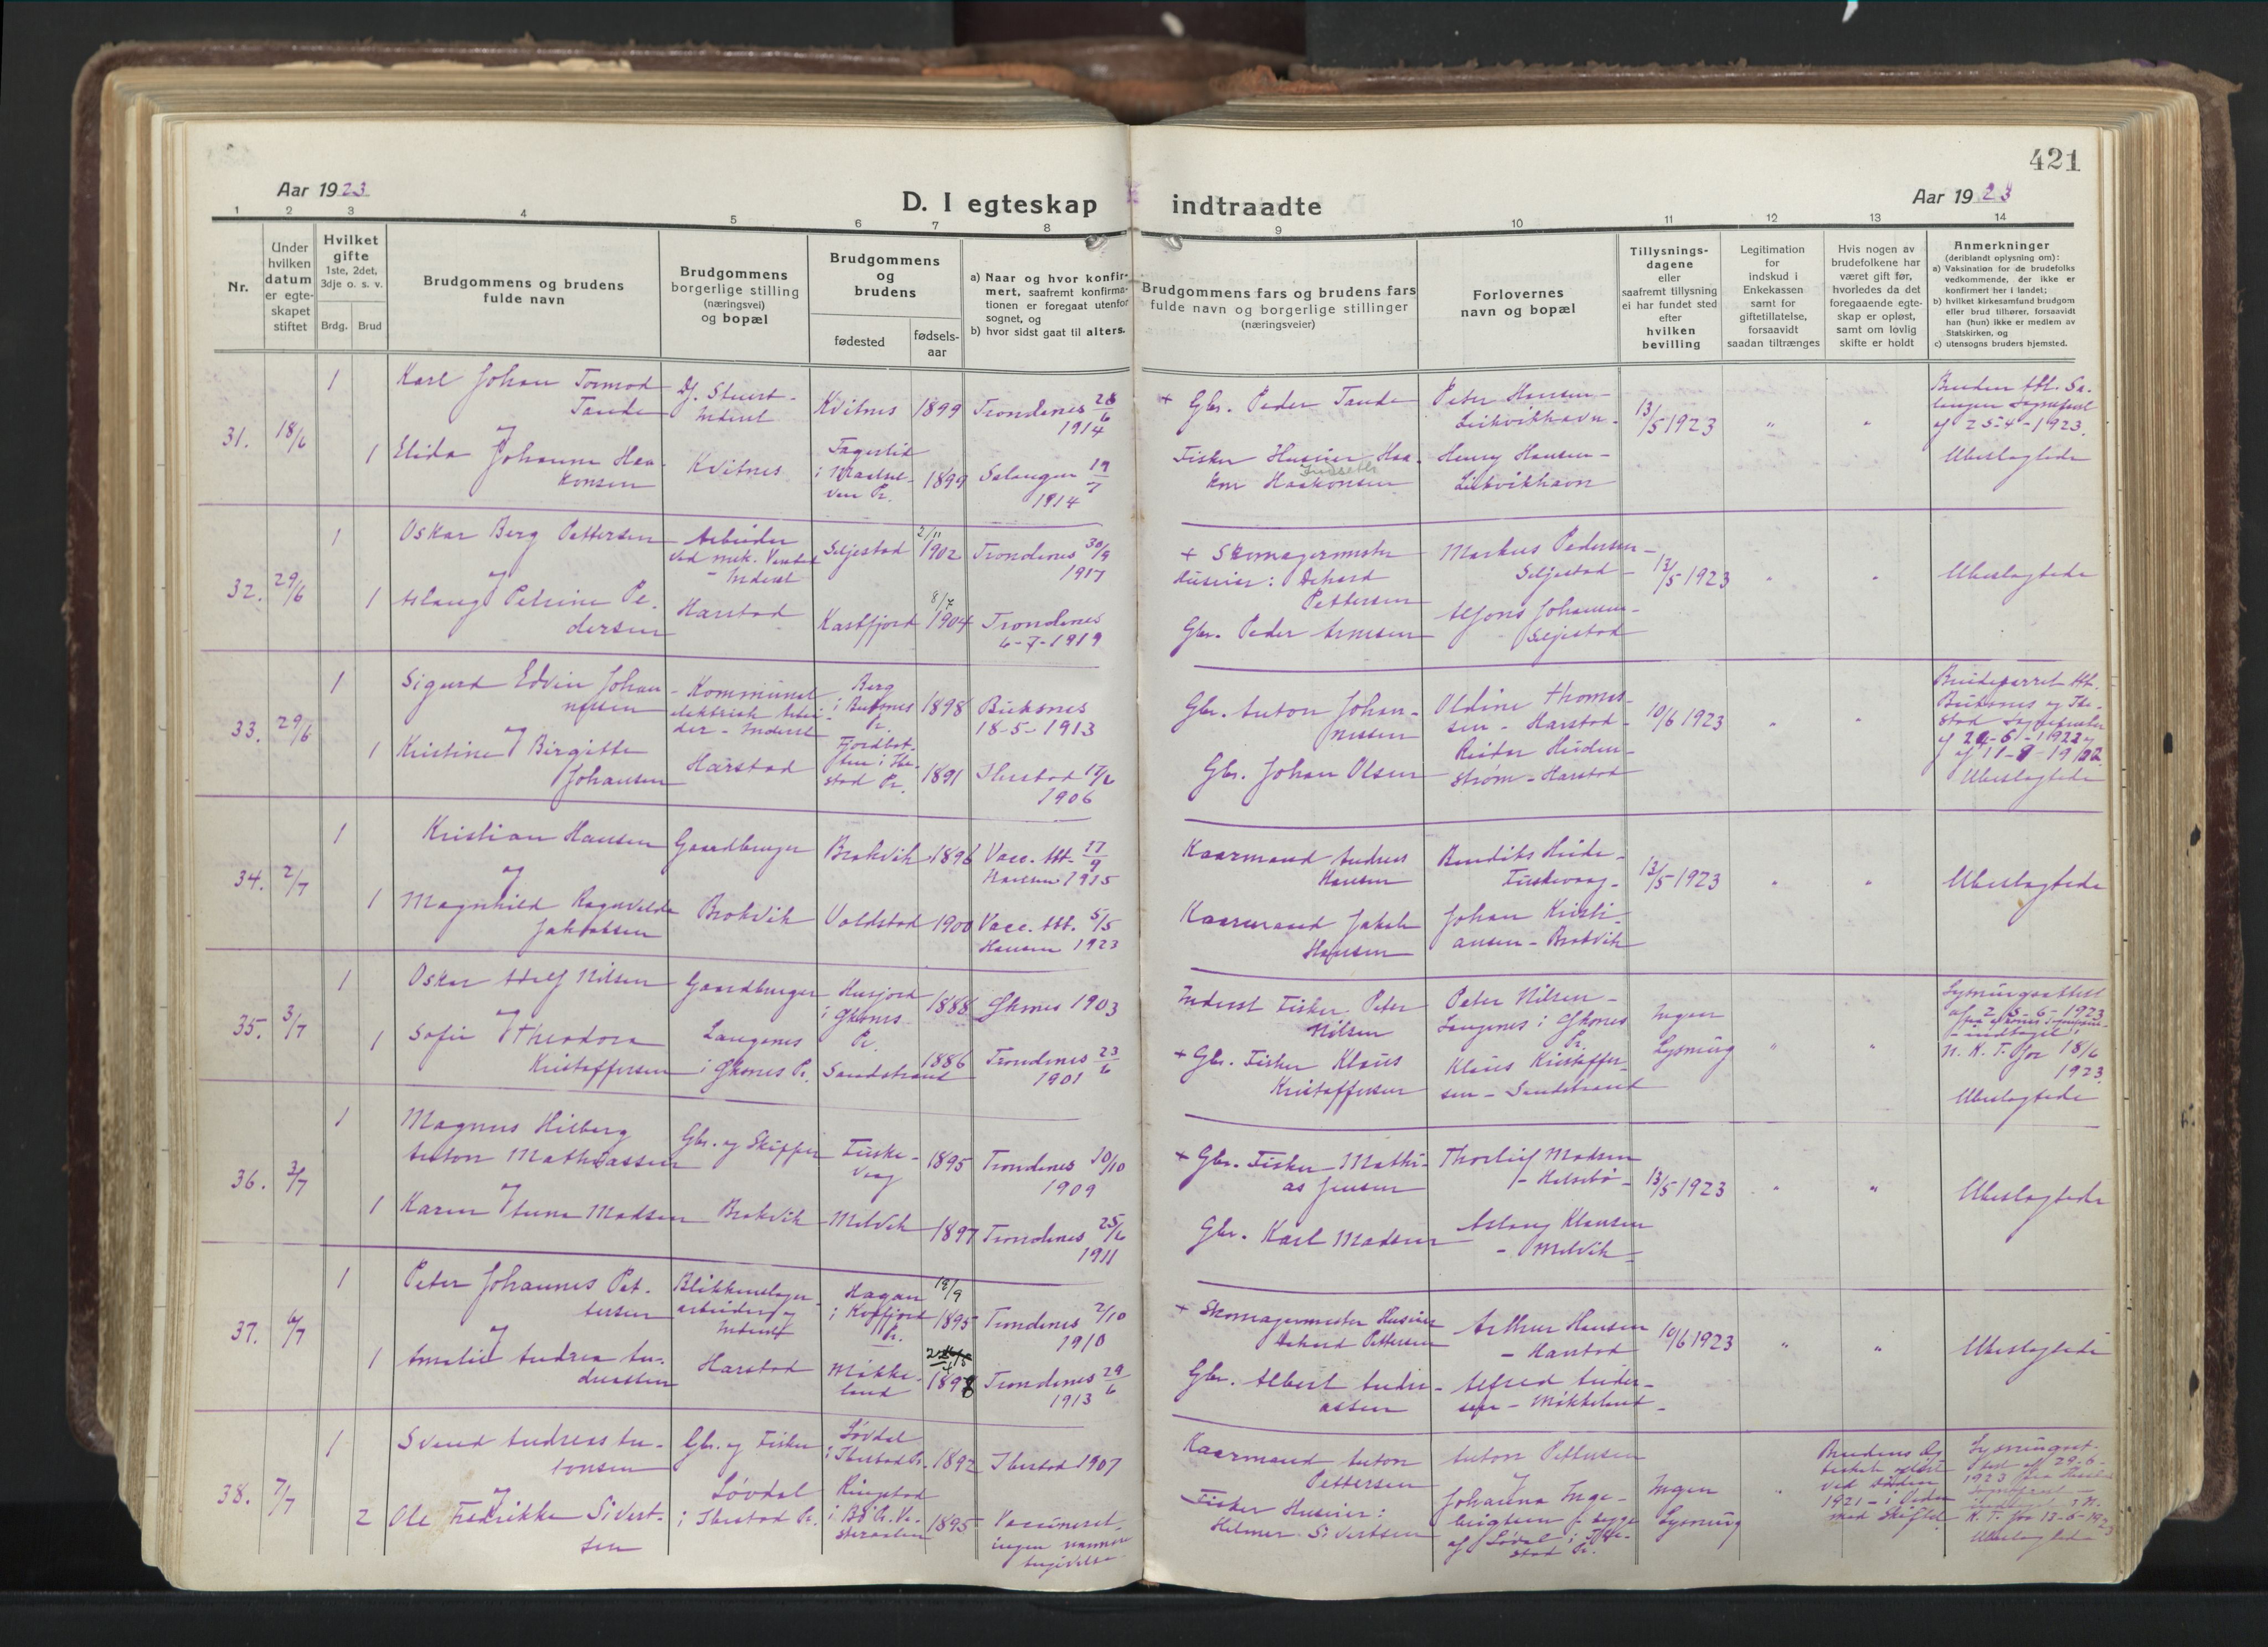 421
Aar 1923
D. I egteskap indtraadte
Aar 1923
1 2 3 4 5 6 7 8 9 10 11 12 13 14
Nr.
Under hvilken datum er egteskapet stiftet
Hvilket gifte
1ste, 2det, 3dje o. s. v.
Brdg. Brud
Brudgommens og brudens
fulde navn
Brudgommens
borgerlige stilling
(næringsvei)
og bopæl
Brudgommens
og
brudens
fødested
fødsels-
aar
a) Naar og hvor konfir-
mert, saafremt konfirma-
tionen er foregaat utenfor
sognet, og
b) hvor sidst gaat til alters.
Brudgommens fars og brudens fars
fulde navn og borgerlige stillinger
(næringsveier)
Forlovernes
navn og bopæl
Tillysnings-
dagene
eller
saafremt tillysning
ei har fundet sted
efter
hvilken
bevilling
Legitimation
for
indskud i
Enkekassen
samt for
giftetillatelse,
forsaavidt
saadan tiltrænges
Hvis nogen av
brudefolkene har
været gift før,
hvorledes da det
foregaaende egte-
skap er opløst,
samt om lovlig
skifte er holdt
Anmerkninger
(deriblandt oplysning om):
a) Vaksination for de brudefolks
vedkommende, der ikke er
konfirmert her i landet;
b) hvilket kirkesamfund brudgom
eller brud tilhører, forsaavidt
han (hun) ikke er medlem av
Statskirken, og
c) utensogns bruders hjemsted.
31. 18/6
1 Karl Johan Tormod
Tande
Inderst
Kvitnes 1899 Trondenes 28/6
1914
+ Gbr. Peder Tande
Peter Hansen -
13/5 1923
"
"
Bruden
af 25-4-1923.
og
1 Elida Johanne Haa-
konsen
Kvitnes
Fagerlid
1899 Salangen 19/7
1914
Fisker Huseier Haa-
kon Haakonsen
Henry Hansen -
Ubeslegtede
32. 29/6
1 Oskar Berg Pettersen
Arbeider
ved mek. Verksted
- Inderst
Seljestad 2/11 1902 Trondenes 30/9
1917
+ Skomagermester
Huseier:
Pettersen
Markus Pedersen -
Seljestad -
13/5 1923
"
"
Ubeslegtede
og
1 Aslaug Petrine Pe-
dersen
Harstad
Kasfjord 8/7 1904 Trondenes
6-7-1919
Gbr. Peder Arntsen
Alfons Johansen -
Seljestad
33. 29/6
1 Sigurd Edvin Johan-
nesen
Kommunal
elektrisk Arbei-
der - Inderst
Berg
i Buksnes
Pr.
1898 Buksnes
18-5-1913
Gbr. Anton Johan-
nessen
Oldine Thomas-
sen - Harstad -
10/6 1923
"
"
Brudeparret
Buksnes og Ibe-
stad
og
1 Kristine Birgitte
Johansen
Harstad
Fjordbot-
ten i Ibe-
stad Pr.
1891 Ibestad 17/6
1906
Gbr. Johan Olsen
Reidar
- Harstad
Ubeslegtede
34. 2/7
1 Kristian Hansen
Gaardbruger Brokvik 1896 Vacc. Att. 17/9
Hansen 1915
Kaarmand Andreas
Hansen
Bendiks
13/5 1923
"
"
Ubeslegtede
og
1 Magnhild Ragnvalda
Jakobsen
Brokvik Voldstad 1900 Vacc. Att. 5/5
Hansen 1923
Kaarmand Jakob
Hansen
Johan Kristi-
ansen - Brokvik
35. 3/7
1 Oskar Adolf Nilsen
Gaardbruger Husjord
i Øksnes
Pr.
1888 Øksnes 1903
Inderst Fisker Peter
Nilsen
Peter Nilsen -
Langenes i Øksnes
Pr.
Ingen
Lysning
"
"
Lysningsattest
N. K. T. for 18/6
1923.
Ubeslegtede
og
1 Sofie Theodora
Kristoffersen
Langenes
i Øksnes Pr.
Sandstrand 1886 Trondenes 23/6
1901
+ Gbr. Fisker Klaus
Kristoffersen
Klaus Kristoffer-
sen - Sandstrand
36. 3/7
1 Magnus Hilberg
Anton Mathiassen
Gbr. og Skipper
1895 Trondenes 10/10
1909
+ Gbr. Fisker - Mathi-
as Jensen
Thorleif Madsen
13/5 1923
"
"
Ubeslegtede
og
1 Karen Anna Madsen
Brokvik Melvik 1897 Trondenes 25/6
1911
Gbr. Karl Madsen
Aslaug Klausen
- Melvik -
37. 6/7
1 Peter Johannes Pet-
tersen
Blikkenslager-
arbeider og
Inderst
Hagan
i Kvæfjord
Pr.
19/9 1895 Trondenes 2/10
1910
+ Skomagermester Huseier
Pettersen
Arthur Hansen
- Harstad
10/6 1923
"
"
Ubeslegtede
og
1 Amalie Andrea An-
dreassen
Harstad
Møkke-
land
1898 Trondenes 29/6
1913
Gbr. Albert Andre-
assen
Alfred Ander-
sen - Møkkeland -
38. 7/7
1 Svend Andreas An-
tonsen
Gbr. og Fisker
Løvdal
i Ibestad Pr.
Løvdal
i Ibestad Pr.
1892 Ibestad 1907
Kaarmand Anton
Pettersen
Anton Pettersen
og
Johanna Inge-
brigtsen f. begge
af Løvdal i Ibe-
stad Pr.
Ingen
Lysning
"
Brudens Eg-
teskab opløst
ved Døden
1921
Lysningsat-
test af 29-6-
1923
K. T. for 13-6-1923
Ubeslegtede
og
2 Ole Fredrikke Sivert-
sen
Ringstad
i Bø Pr. Ve-
steraalen
1895 Vaccineret,
ingen nærmere
angivelse
Fisker Huseier:
Helmer Sivertsen